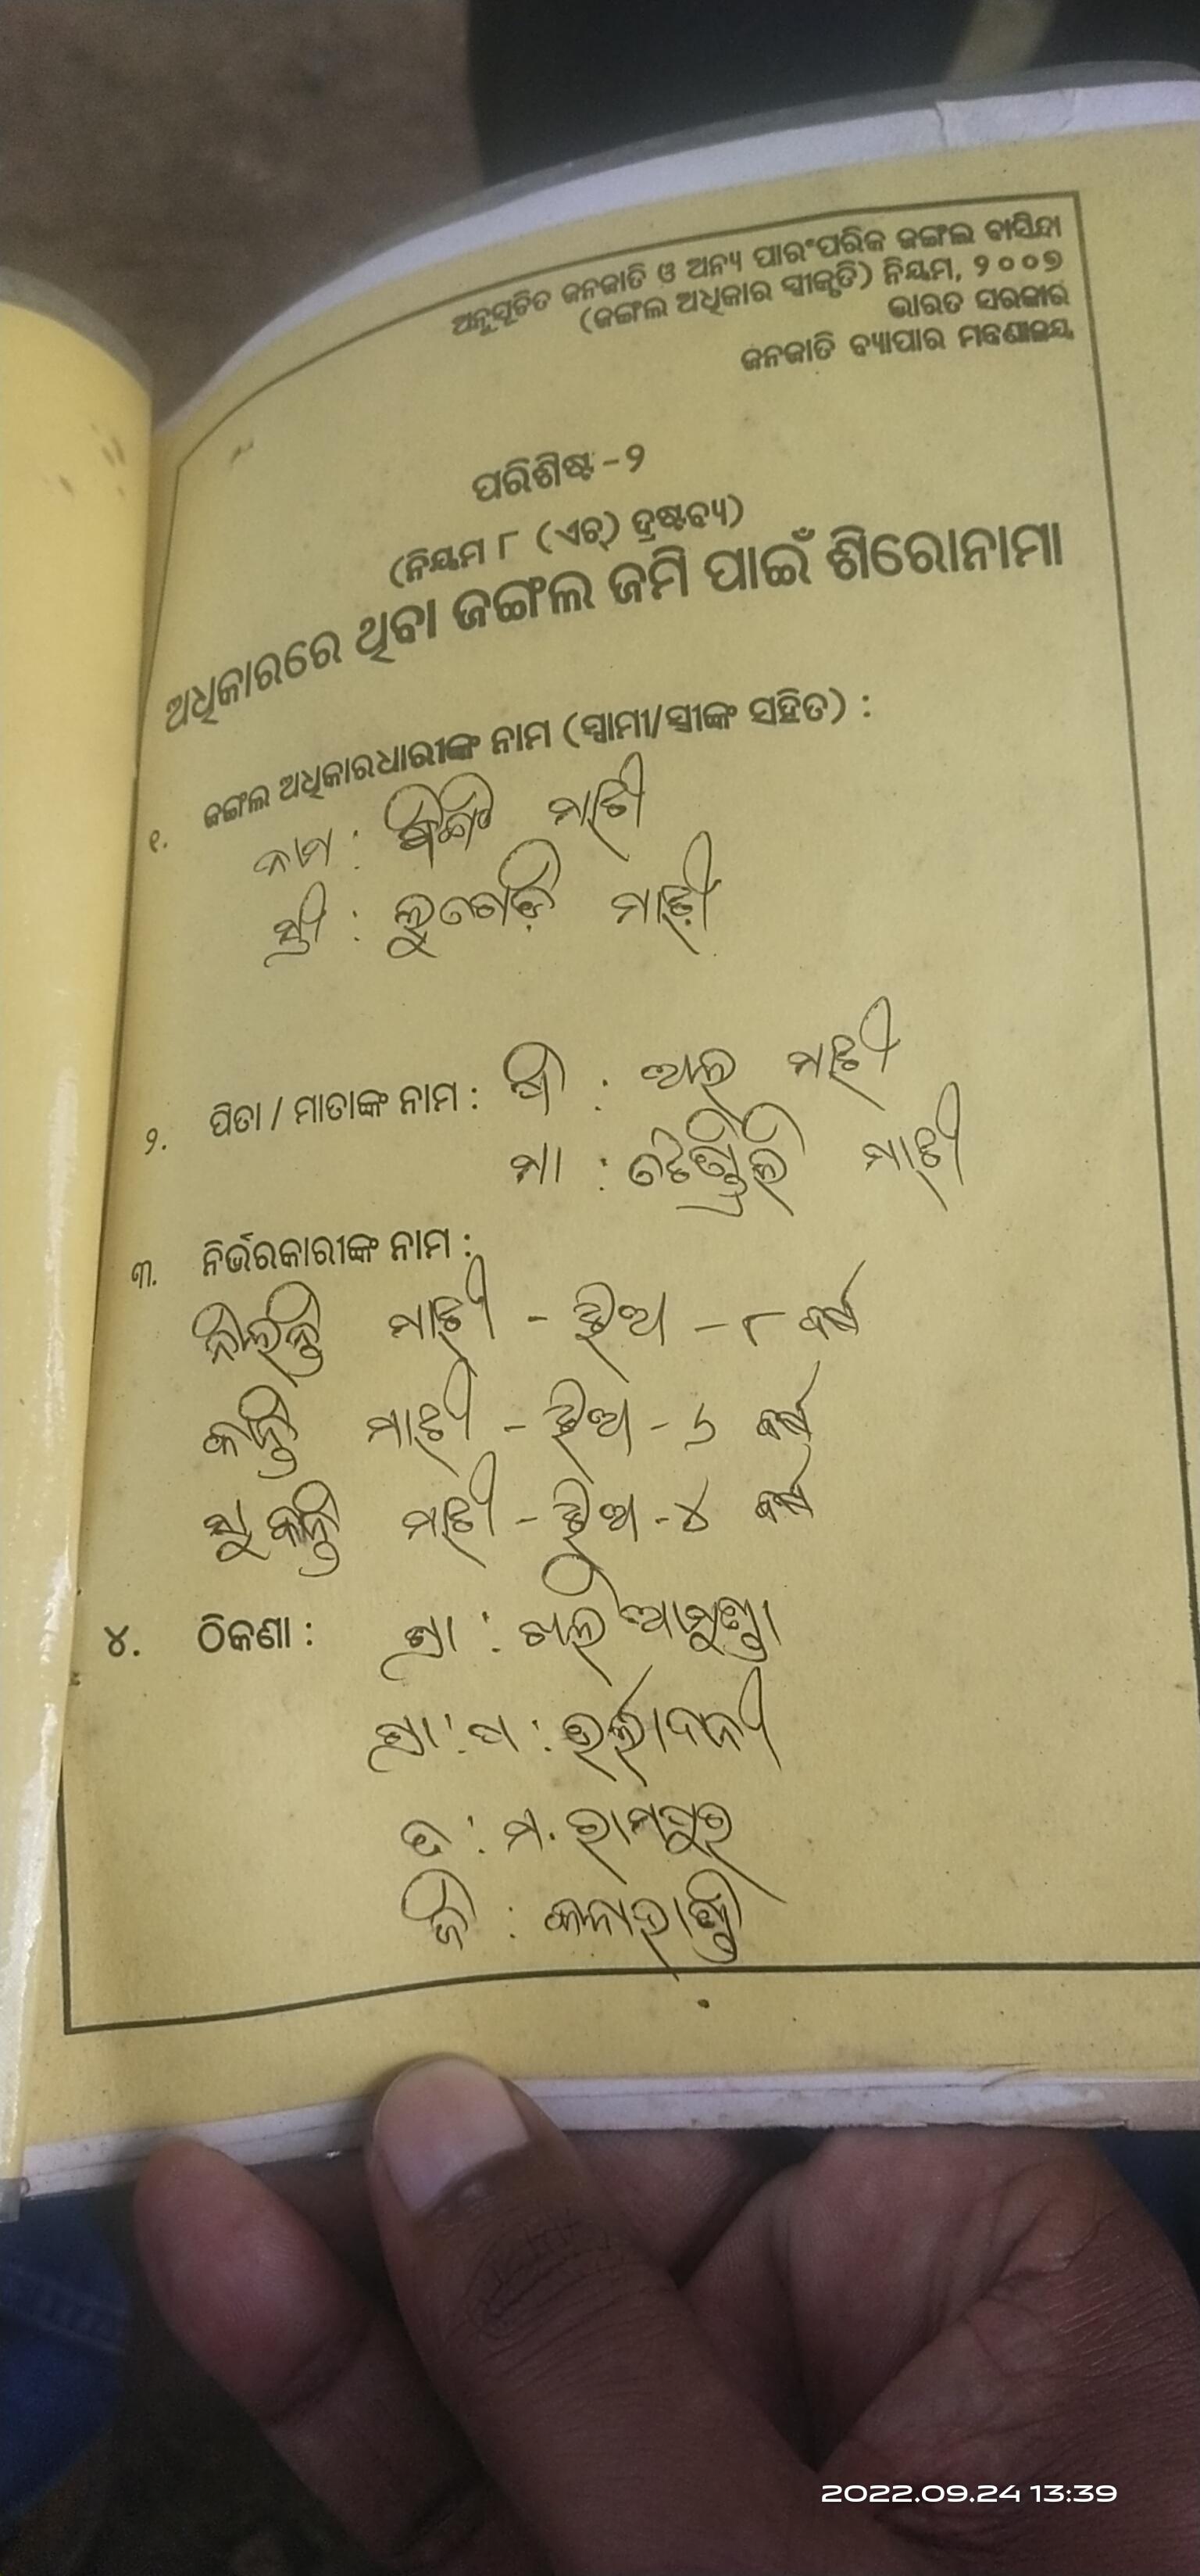 ଅନୁସୂଚିତ ଜନଜାତି ଓ ଅନ୍ୟ ପାରଂପରିକ ଜଙ୍ଗଲ ବାସିନ୍ଦା
(ଜଙ୍ଗଲ ଅଧିକାର ସ୍ୱୀକୃତି) ନିୟମ, ୨୦୦୭
ଭାରତ ସରକାର
ଜନଜାତି ବ୍ୟାପାର ମନ୍ତ୍ରଣାଳୟ
ପରିଶିଷ୍ଟ-୨
(ନିୟମ ୮ (ଏଚ୍) ଦ୍ରଷ୍ଟବ୍ୟ)
ଅଧିକାରରେ ଥିବା ଜଙ୍ଗଲ ଜମି ପାଇଁ ଶିରୋନାମା
୧. ଜଙ୍ଗଲ ଅଧିକାରଧାରୀଙ୍କ ନାମ (ସ୍ୱାମୀ/ସ୍ତ୍ରୀଙ୍କ ସହିତ) :
ନାମ : ମାଝୀ
ସ୍ତ୍ରୀ : ମାଝୀ
୨. ପିତା / ମାତାଙ୍କ ନାମ : ପି : ମାଝୀ
ମା : ମାଝୀ
୩. ନିର୍ଭରକାରୀଙ୍କ ନାମ :
ମାଝୀ - ଝିଅ - ୮ ବର୍ଷ
ମାଝୀ - ଝିଅ - ୬ ବର୍ଷ
ମାଝୀ - ଝିଅ - ୪ ବର୍ଷ
୪. ଠିକଣା : ଗ୍ରା :
ଗ୍ରା : ପ :
ବ : ମ. ରାମପୁର
ଜି : କଳାହାଣ୍ଡି
2022.09.24 13:39